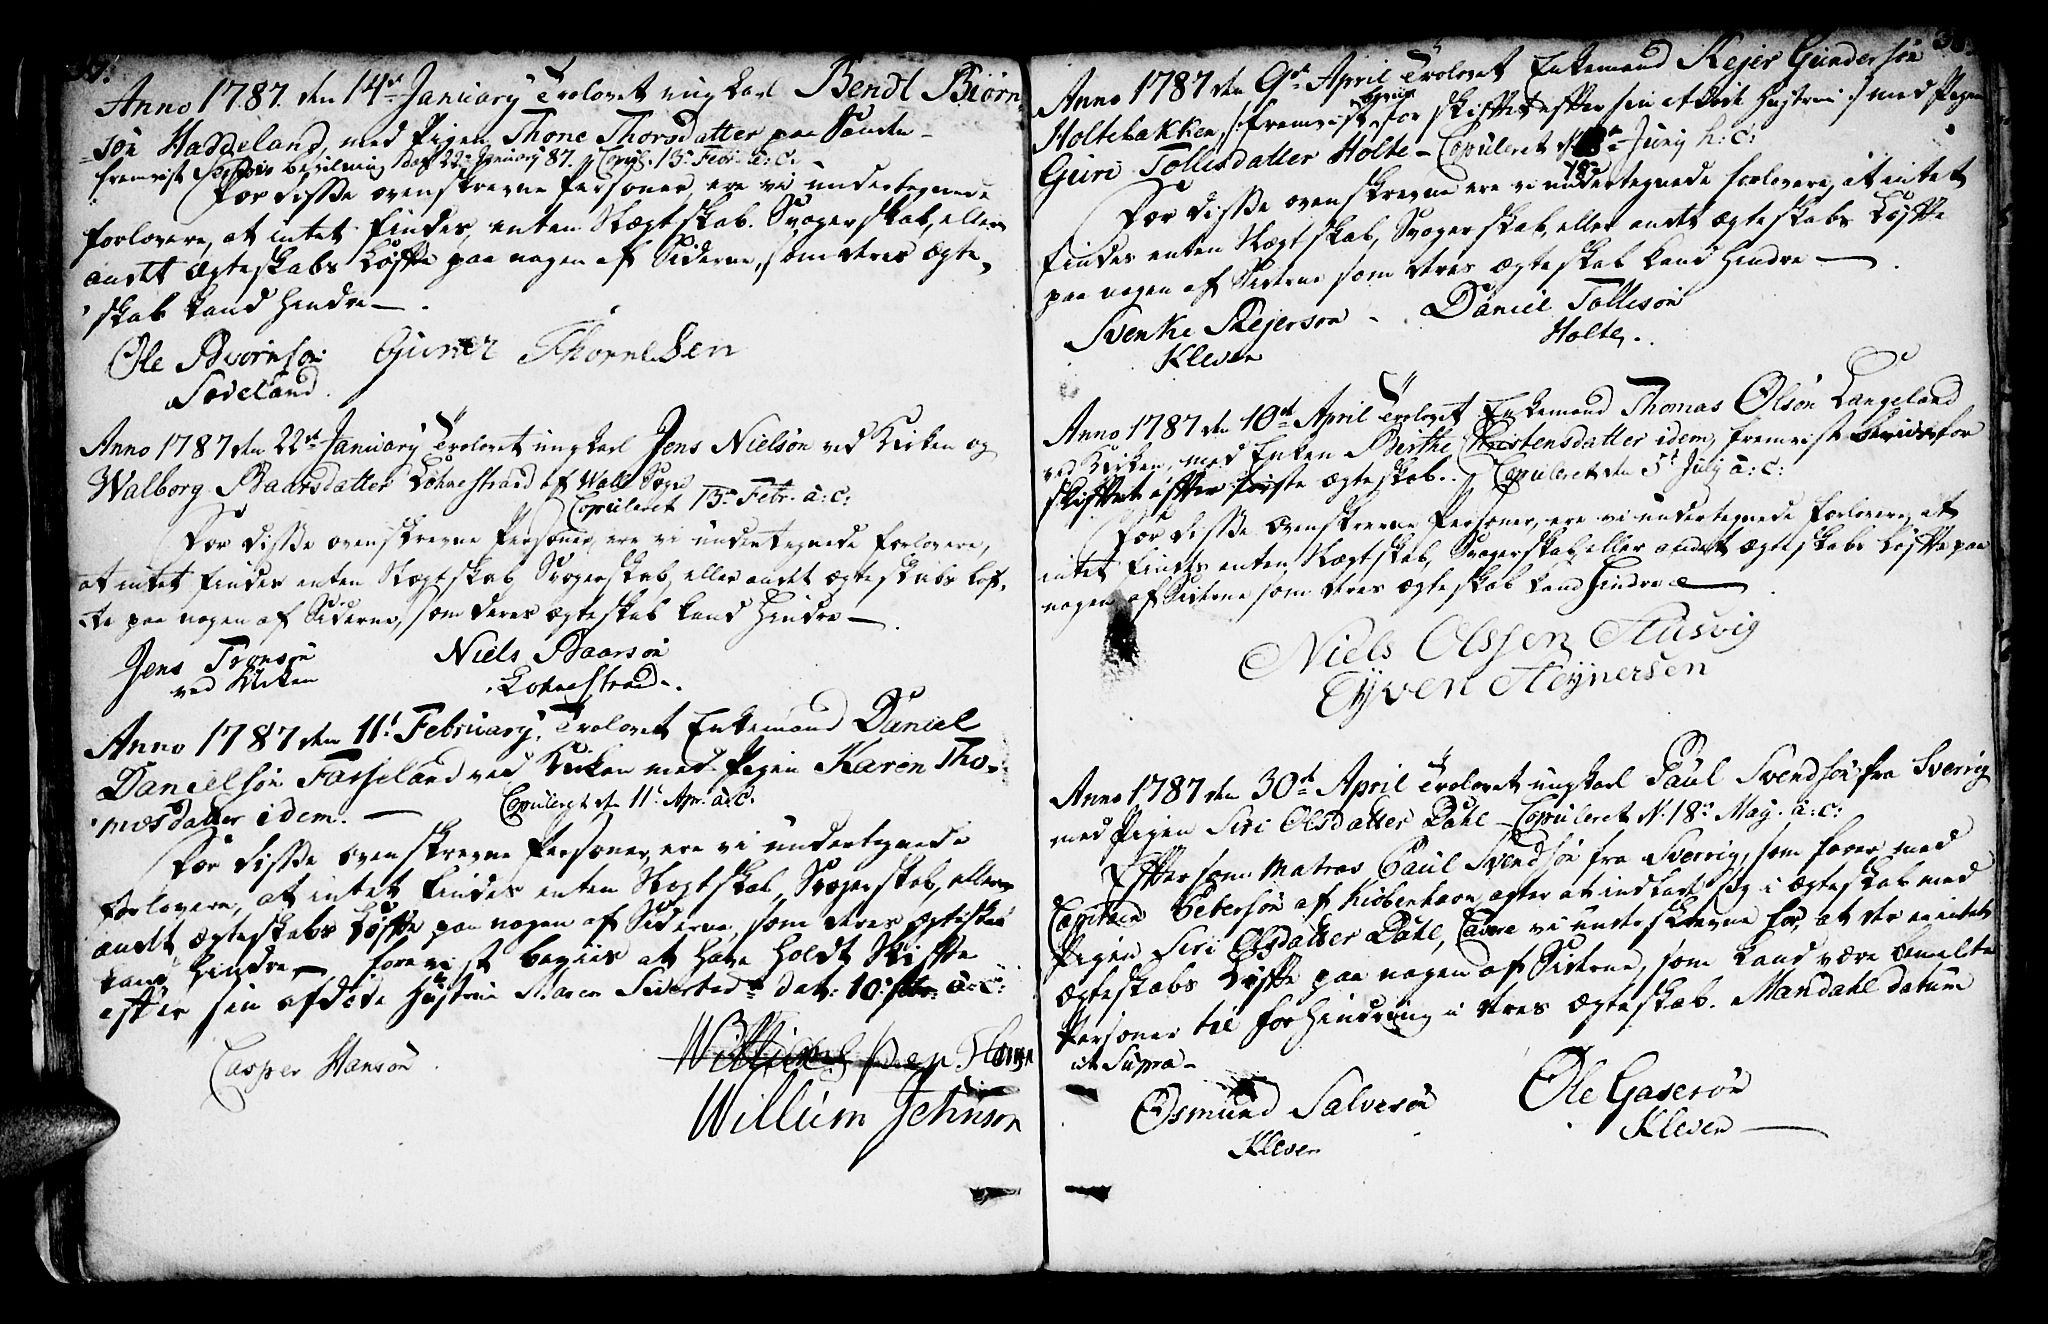 37.
Anno 1787. den 14de January Trolovet ungkarl Bendt Biørn-
søn Haddeland, med Pigen Thone Thorsdatter paa
fremvist Bevilning dat 22 January 87. Copul. 13. Febr. a: c:
For disse ovenskrevne Personer, ere vi undertegnede
forlovere, at intet findes, enten Slægtskab, Svogerskab, eller
andet Ægteskabs Løfte paa nogen af Siderne, som deres Ægte-
skab kand hindre —
Ole Biørnsøn
Søveland.
Guner Thornesen
Anno 1787 den 22de January Trolovet ungkarl Jens Nielsøn ved Kirken og
Walborg Baarsdatter Lohnestrand af Sogn
Copuleret 13. Febr. a: c:
For disse ovenskrevne Personer, ere vi undertegnede forlovere,
at intet findes enten Slægtskab, Svogerskab, eller andet Ægteskabs Løf-
te paa nogen af Siderne, som deres Ægteskab kand hindre —
Jens Tronsøn
ved Kirken
Niels Baarsøn
Lohnestrand.
Anno 1787 den 11t February, Trolovet Enkemand Daniel
Danielsøn Fasseland ved Kirken med Pigen Karen Tho-
mæsdatter idem. —
Copuleret den 11t Apr. a: c.
For disse ovenskrevne Personer, ere vi undertegnede
forlovere, at intet findes enten Slægtskab, Svogerskab, eller
andet Ægteskabs Løfte paa nogen af Siderne, som deres Ægteskab
kand hindre — forevist beviis at have holdt Skifte
efter sin afdøde Hustrue Maren Sivertsd. dat: 10. a: c:
Casper Hansøn
Willum Johnson
38.
Anno 1787 den 9de April Trolovet Enkemand Rejer Gundersøn
Holtebakken, fremviste beviis for Skiftet efter sin afdøde Hustrue med Pigen
Guri Tollisdatter Holte — Copuleret d. 18 Juny h: c:
For disse ovenskrevne ere vi undertegnede forlovere, at intet
findes enten Slægtskab, Svogerskab, eller andet Ægteskabs Løfte
paa nogen af Siderne som deres Ægteskab kand hindre —
Svenke Rejersøn
Kleven
Daniel Tollisøn
Holte.
Anno 1787 den 10de April Trolovet Enkemand Thomas Olsøn Langeland
ved Kirken, med Enken Berthe Christensdatter idem, fremvist beviis for
Skiftet efter første Ægteskab. Copuleret den 5t July a: c:
For disse ovenskrevne Personer, ere vi undertegnede forlovere, at
intet findes enten Slægtskab, Svogerskab eller andet Ægteskabs Løfte paa
nogen af Siderne som deres Ægteskab kand hindre —
Niels Olssen Husvig
Eyven Reynersen
Anno 1787 den 30de April Trolovet ungkarl Paul Svendsøn fra Sverrig
med Pigen Siri Olsdatter Dahl Copuleret d. 18. May. a: c:
Eftersom Matros Paul Svendsøn fra Sverrig, som farer med
Capitain Petersøn af Kiøbenhavn agter at indlade sig i Ægteskab med
Pigen Siri Olsdatter Dahl, Cavere vi underskrevne for, at der er intet
Ægteskabs Løfte paa nogen af Siderne, som kand være bemelte
Personer til forhindring i deres Ægteskab. Mandahl datum
ut Supra —
Osmund Salvesøn
Kleven
Ole Gasesøn
Kleven —